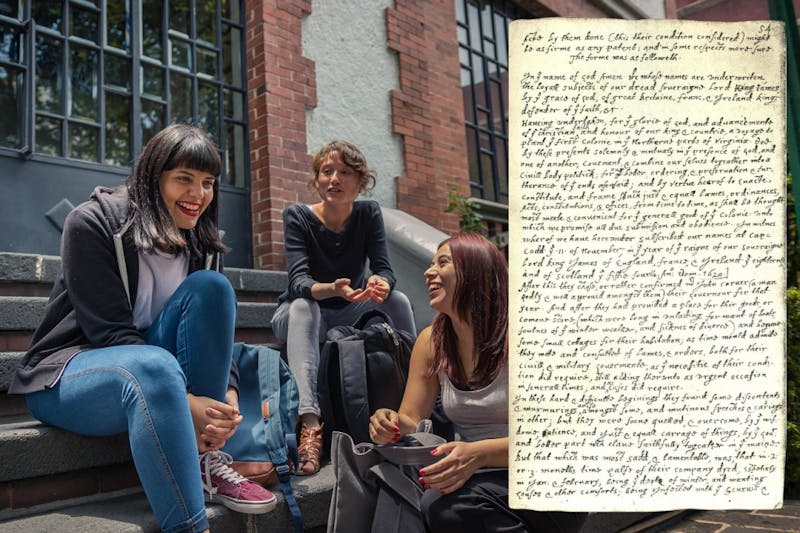 54
shew by them done (this their condition considered) might
be as firme as any patent; and in some respects more sure.
The forme was as followeth.
In ye name of god Amen. We whose names are underwriten,
the loyall subjects of our dread soveraigne Lord King James
by ye grace of god, of great Britaine, franc, & Ireland king,
defender of ye faith, &c
Haveing undertaken, for ye glorie of god, and advancemente
of ye christian faith and honour of our king & countrie, a voyage to
plant ye first colonie in ye Northerne parts of Virginia. doe
by these presents solemnly & mutualy in ye presence of god, and
one of another, covenant, & combine our selves togeather into a
civill body politick; for our better ordering, & preservation & fur-
therance of ye ends aforesaid; and by vertue hearof to enacte,
constitute, and frame such just & equall lawes, ordinances,
Acts, constitutions, & offices, from time to time, as shall be thought
most meete & convenient for ye generall good of ye colonie: unto
which we promise all due submission and obedience. In witnes
wherof we have hereunder subscribed our names at cap-
codd ye .11. of November, in ye year of ye raigne of our soveraigne
Lord king James of England, france, & Ireland ye eighteenth
and of scotland ye fiftie fourth. Ano: Dom. 1620.]
After this they chose, or rather confirmed mr John carver (a man
godly & well approved amongst them) their Governour for that
year. And after they had provided a place for their goods, or
comone store, (which were long in unlading for want of boats,
foulnes of ye winter weather, and sicknes of diverce) and begune
some small cottages for their habitation; as time would admitte
they mette and consulted of lawes, & orders, both for their
civill & military Govermente, as ye necessitie of their condi-
tion did require, still adding therunto as urgent occasion
in severall times, and as cases did require.
In these hard & difficulte beginings they found some discontents
& murmurings amongst some, and mutinous speeches & carriags
in other; but they were soone quelled, & overcome, by ye wis-
dome, patience, and just & equall carrage of things, by ye gov
and better part wch clave faithfully togeather in ye maine.
But that which was most sadd, & lamentable, was, that in 2.
or 3. moneths time halfe of their company dyed, espetialy
in Jan: & february, being ye depth of winter, and wanting
houses & other comforts; being infected with ye scurvie &